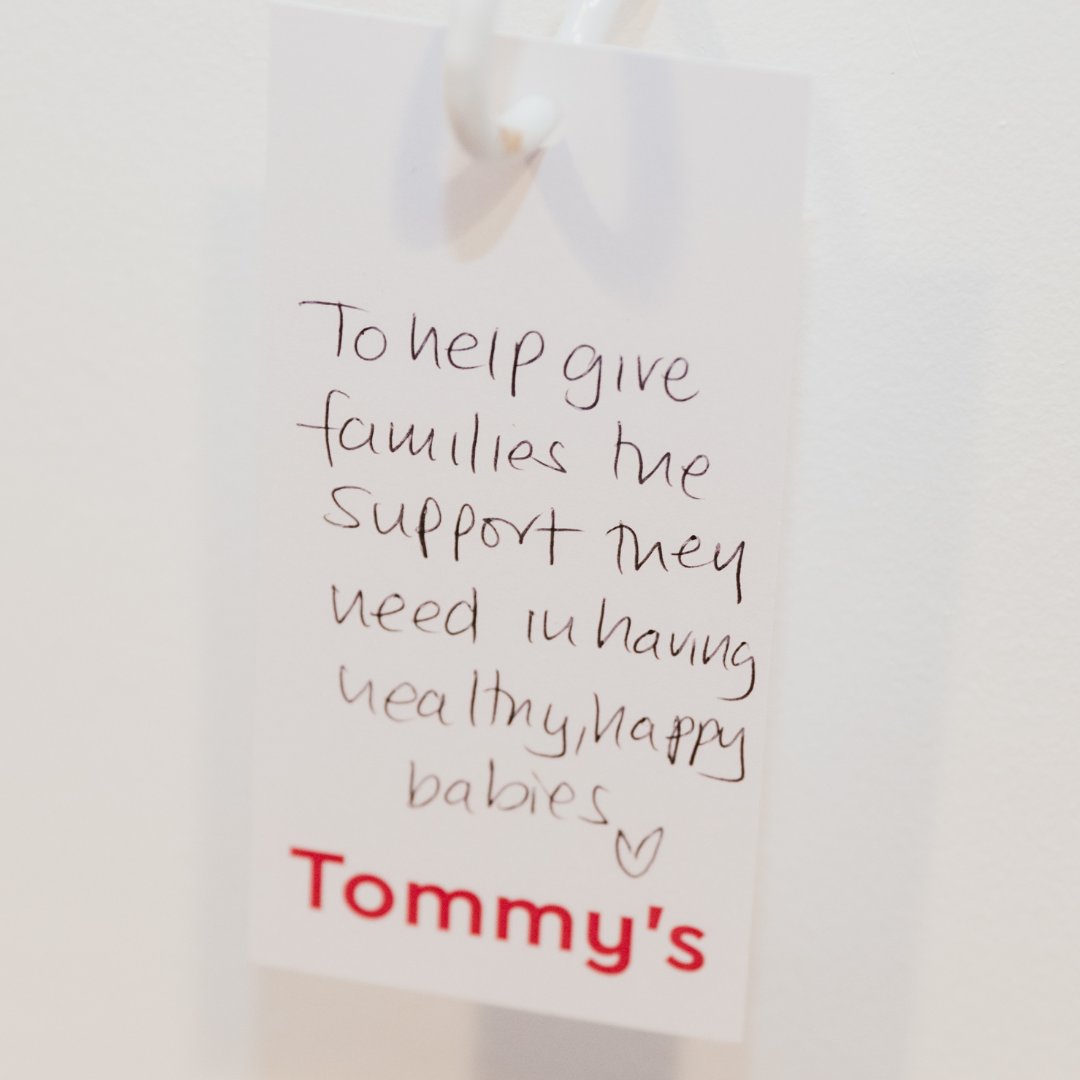 To help give
families the
support they
need in having
healthy, happy
babies
Tommy's